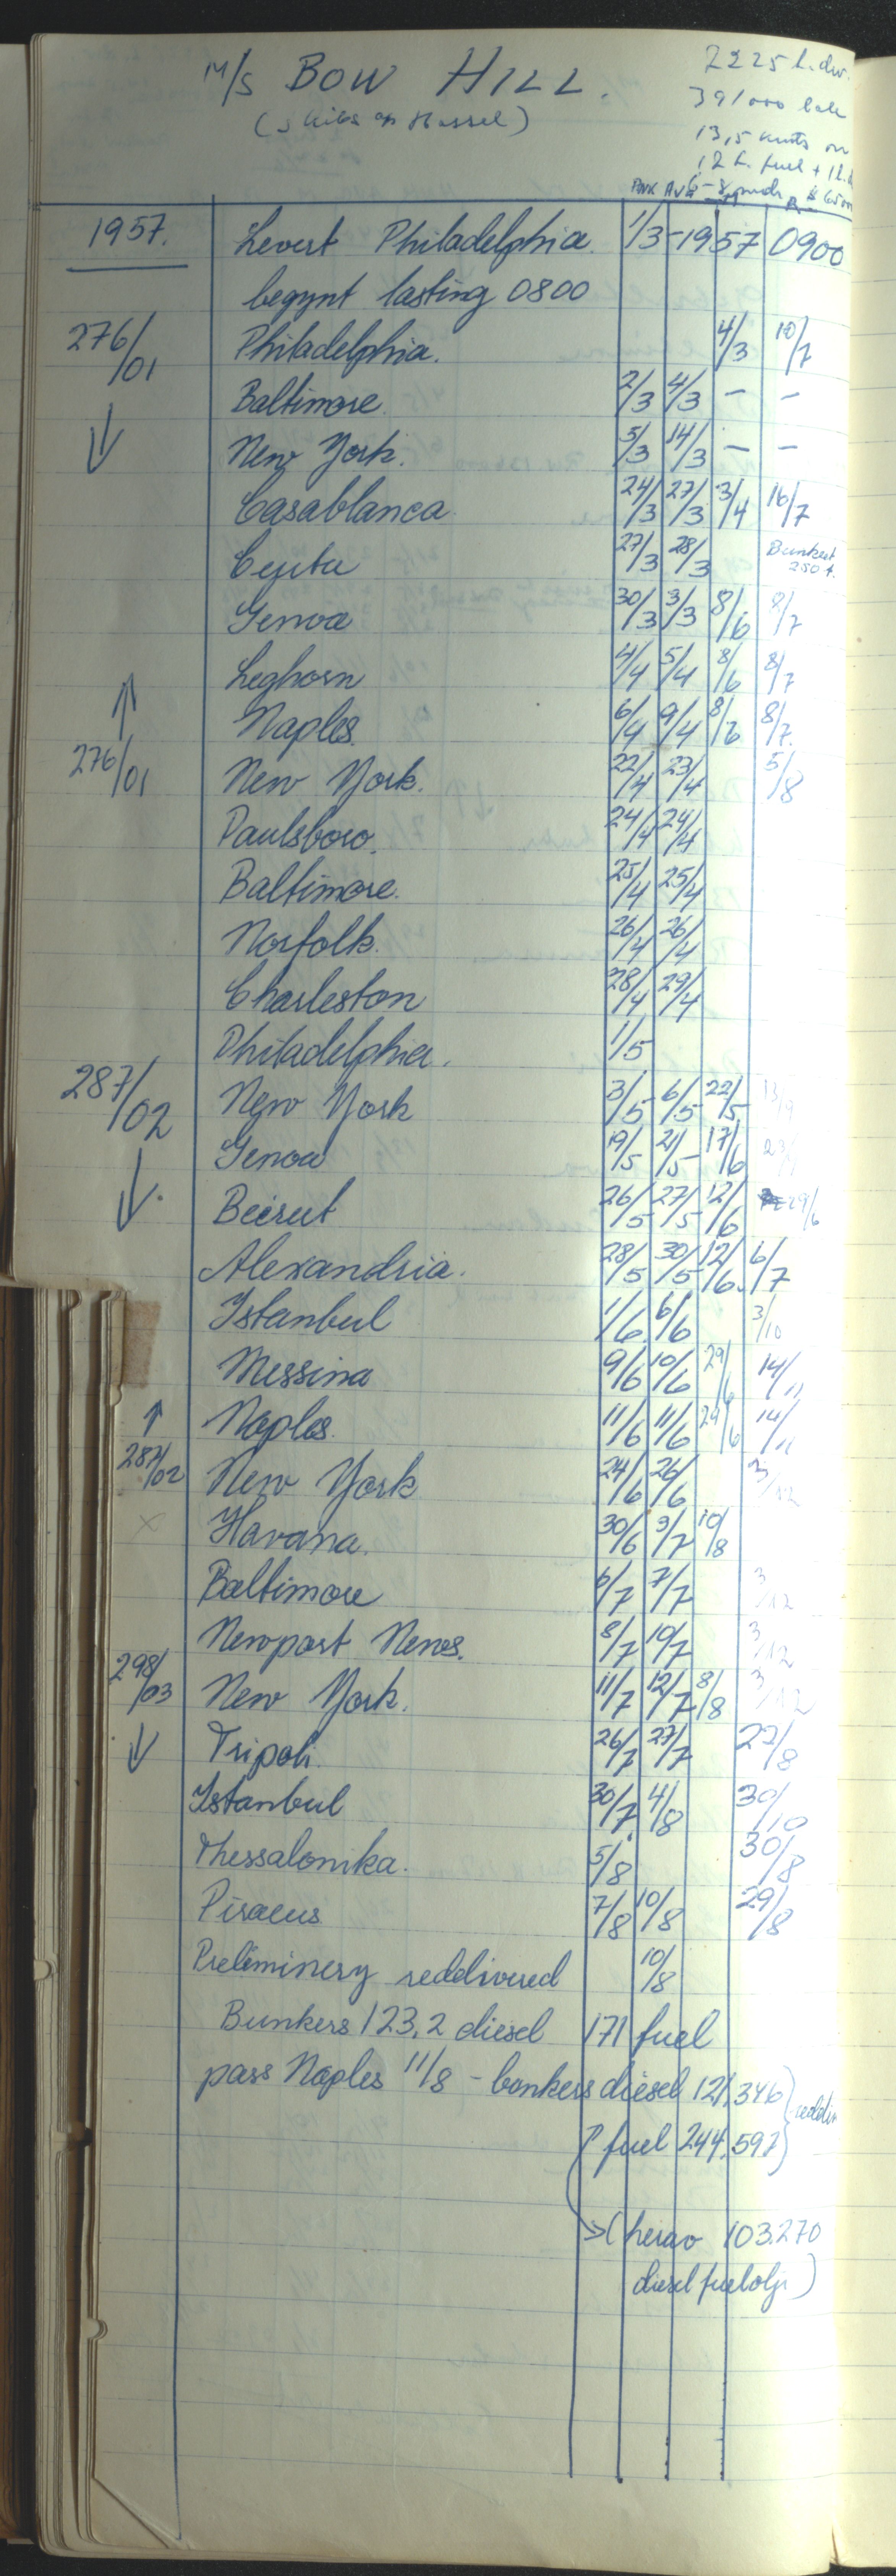 M/S BOW HILL.
391000 bale
13,5 knots on
12 t. fuel +
Ank Avg
1957. Levert Philadelphia 1/3-1957 0900
begynt lasting 0800
276/01 Philadelphia. 4/3 10/7
Baltimore. 2/3 4/3 - -
↓ New York. 5/3 14/3 - -
Casablanca 24/3 27/3 3/4 16/7
Ceuta 27/3 28/3 Bunkret 250 t.
Genoa 30/3 3/3 8/6 8/7
Leghorn 4/4 5/4 8/6 8/7
↑ Naples. 6/4 9/4 8/6 8/7.
276/01 New York. 22/4 23/4 5/8
Paulsboro. 24/4 24/4
Baltimore. 25/4 25/4
Norfolk. 26/4 26/4
Charleston 28/4 29/4
Philadelphia. 1/5
287/02 New York 3/5 6/5 22/5 13/9
Genoa 19/5 21/5 17/6
↓ Beirut 26/5 27/5 12/6 29/6
Alexandria. 28/5 30/5 12/6 6/7
Istanbul 1/6 6/6 3/10
Messina 9/6 10/6 29/6 14/11
↑ Naples. 11/6 11/6 29/6 14/11
287/02 New York 24/6 26/6 3/12
x Havana. 30/6 3/7 10/8
Baltimore 6/7 7/7 3/12
Newport News. 8/7 10/7 3/12
298/03 New York. 11/7 12/7 8/8 3/12
↓ Tripoli. 26/7 27/7 22/8
Istanbul 30/7 4/8 30/10
Thessalonika. 5/8 30/8
Piraeus 7/8 10/8 29/8
Preliminery reddivered 10/8
Bunkers 123,2 diesel 171 fuel
pass Naples 11/8 - bonkers diesel 121,346
fuel 244,597
(herav 103.270
diesel fuelolje)